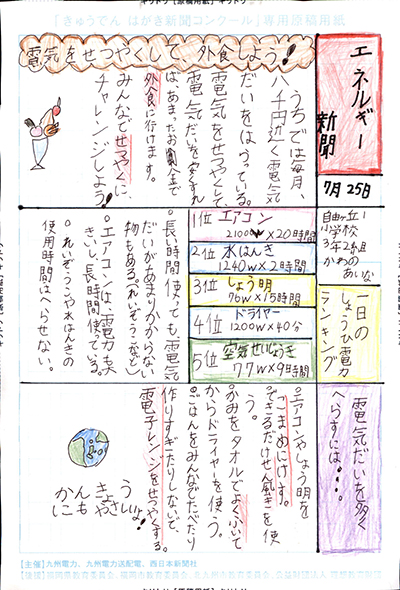 「きゅうでん はがき新聞コンクール」専用原稿用紙
エネルギー
新聞
7月25日
自由ヶ丘
小学校
3年2組
かわの
あいな
電気をせつやくして、外食しよう!!
うちでは毎月、
八千円近く電気
だいをはらっている。
電気をせつやくして、
電気だいを多くへらせ
ば、あまったお金で
外食に行けます。
みんなでせつやくに、
チャレンジしよう!
一日の
しょうひ電力
ランキング
1位 エアコン
2100W×20時間
2位 水はんき
1240W×2時間
3位 しょう明
76W×15時間
4位 ドライヤー
1200W×40分
5位 空気せいじょうき
77W×9時間
。長い時間使っても、電気
だいがあまりかからない
物もある。(れいぞうこなど)
。エアコンは、電力も大
きいし、長時間使っている。
。れいぞうこや水はんきの
使用時間はへらせない。
電気だいを多く
へらすには・・・
。エアコンやしょう明を
こまめにけす。
。できるだけせん風きを使
う。
。かみをタオルでよくふいて
からドライヤーを使う。
。ごはんをみんなでたべたり
作りすぎたりしないで、
電子レンジをせつやくする。
【主催】九州電力、九州電力送配電、西日本新聞社